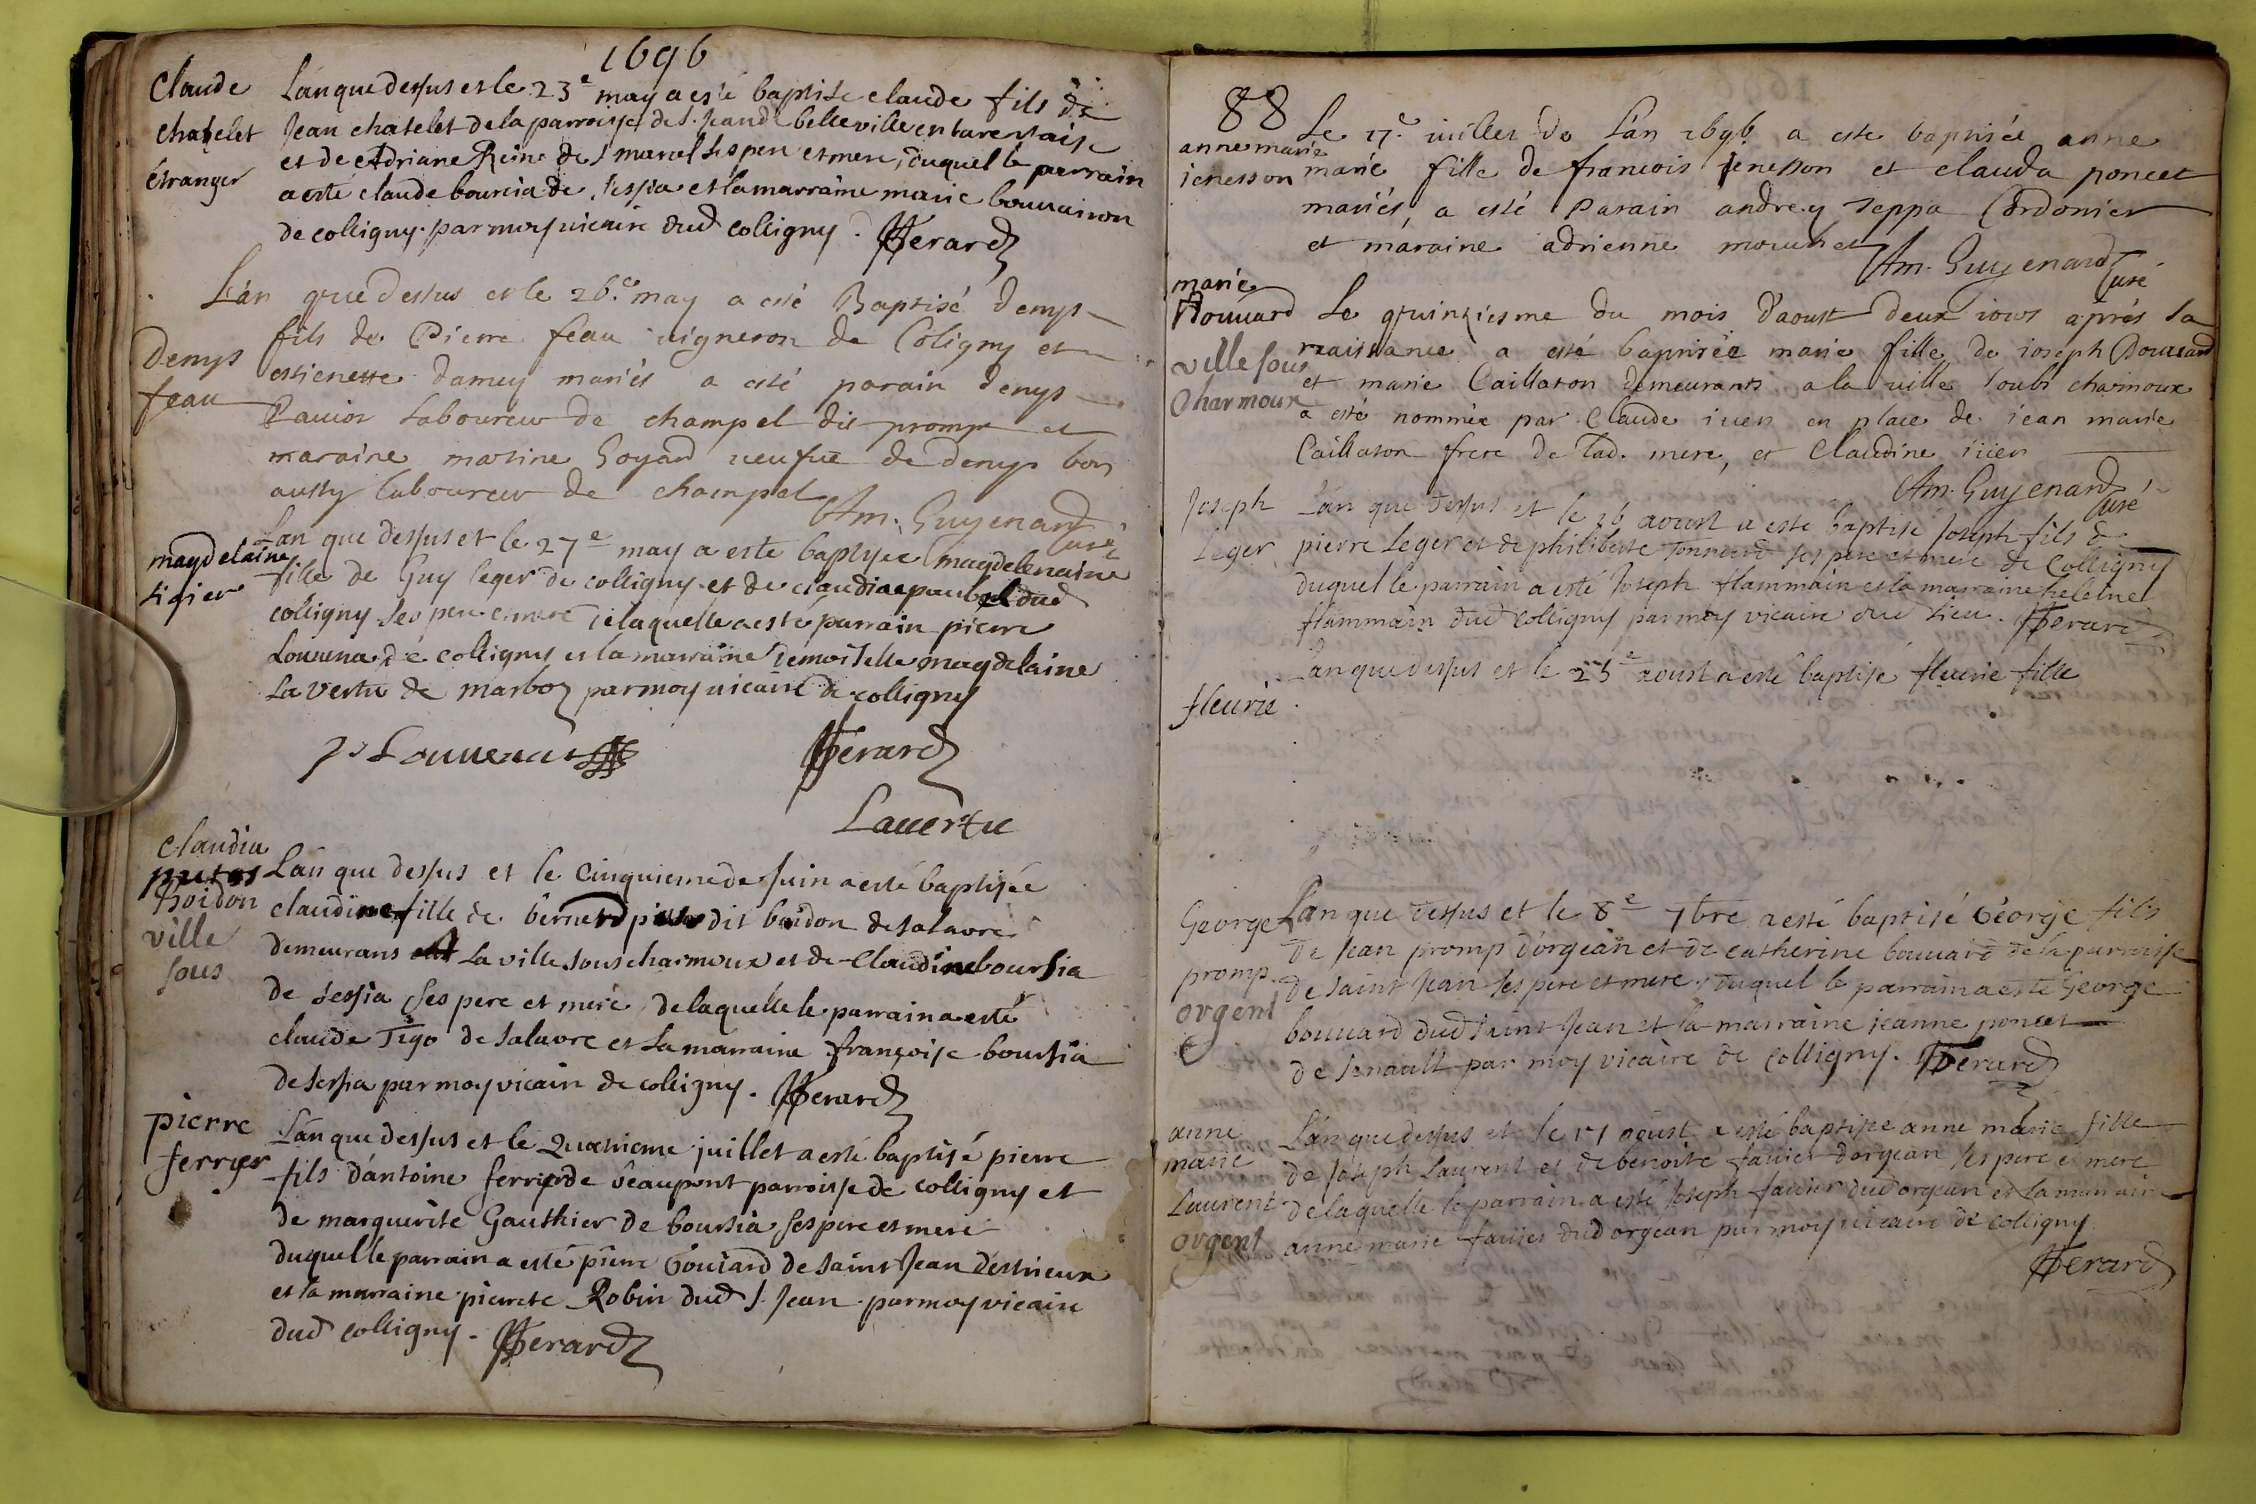 1696
Claude
chatelet
étranger
L'an que dessus et le 23e may a esté baptisé claude fils de
Jean chatelet de la parroisse de S. Jean de belleville en tarentaise
et de Adriane Reine de S marcel ses pere et mere, duquel le parrain
a esté claude bourcia de sessia et la marraine marie bouvairon
de colligny par moy vicaire dud colligny. Herard
Denys
feau
L'an que dessus et le 26.e may a esté Baptisé denys
fils de Pierre feau vigneron de Coligny et
estienette damey mariés a esté parain denys
Pavior laboureur de champel dit promp et
maraine marine Goyard veufve de denys bon
aussy laboureur de champel
Am. Guyenard
Curé
magdelaine
Ligier
Lan que dessus et le 27e may a este baptisee magdelenaine
fille de Guy leger de colligny et de claudine paubel dud
colligny ses pere e mere de laquelle a esté parrain pierre
Louvena de colligny et la marraine demoiselle magdelaine
La vertu de marboz par moy vicaire de colligny
P Louvenat
Herard
Lavertu
Claudia
putos
Boidon
ville
sous
L'an que dessus et le Cinquieme de Juin a esté baptisée
claudine fille de bernard dit boidon de salavre
demeurans a La ville sous charmoux et de Claudine boursia
de sessia ses pere et mere, de laquelle le parrain a esté
claude Tigo de salavre et La marraine françoise boursia
de sessia par moy vicaire de colligny. Herard
pierre
ferrier
L'an que dessus et le Quatrieme juillet a esté baptisé pierre
fils d'antoine ferrier de beaupont parroisse de colligny et
de marguerite Gauthier de boursia ses pere et mere
duquel le parrain a esté pierre Goutard de saint Jean d'estrieux
et la marraine pierrete Robin dud S. Jean par moy vicaire
dud colligny. Herard
88
anne marie
ienesson
Le 17.e iuillet de l'an 1696 a esté baptisée anne
marie fille de francois jenesson et clauda poncet
mariés, a esté Parain andrey seppa Cordonier
et maraine adrienne mouchet
Am. Guyenard
Curé
marie
Bouvard
ville sous
Charmoux
Le quinziesme du mois d'aoust deux iours aprés sa
naissance a esté baptisée marie fille de ioseph Bouvard
et marie Caillaton demeurants a la ville soubs charmoux
a esté nommée par Claude iuen en place de jean marie
Caillaton frere de lad. mere, et Claudine iuen
Am. Guyenard
Curé
Joseph
Leger
L'an que dessus et le 16 aoust a este baptisé Joseph fils de
pierre Leger et de philiberte Tonnard ses pere et mere de Colligny
duquel le parrain a esté Joseph flammain et la marraine heleine
flammain dud colligny par moy vicaire dud Lieu. Herard
fleurie
Lan que dessus et le 23e aoust a esté baptisé fleurie fille
George
promp
orgent
L'an que dessus et le 8e 7bre a esté baptisé George fils
de Jean promp d'orgean et de catherine bouvard de la parroisse
de saint Jean ses pere et mere, duquel le parrain a esté George
bouvard dud saint Jean et la marraine jeanne poncet
de senault par moy vicaire de colligny. Herard
anne
marie
Laurent
orgent
L'an que dessus et le 17 aoust a esté baptisee anne marie fille
de Joseph Laurent et de benoite favier dorgean ses pere e mere
de laquelle le parrain a esté Joseph favier dud orgean et la marraine
anne marie favier dud orgean par moy vicaire de colligny
Herard